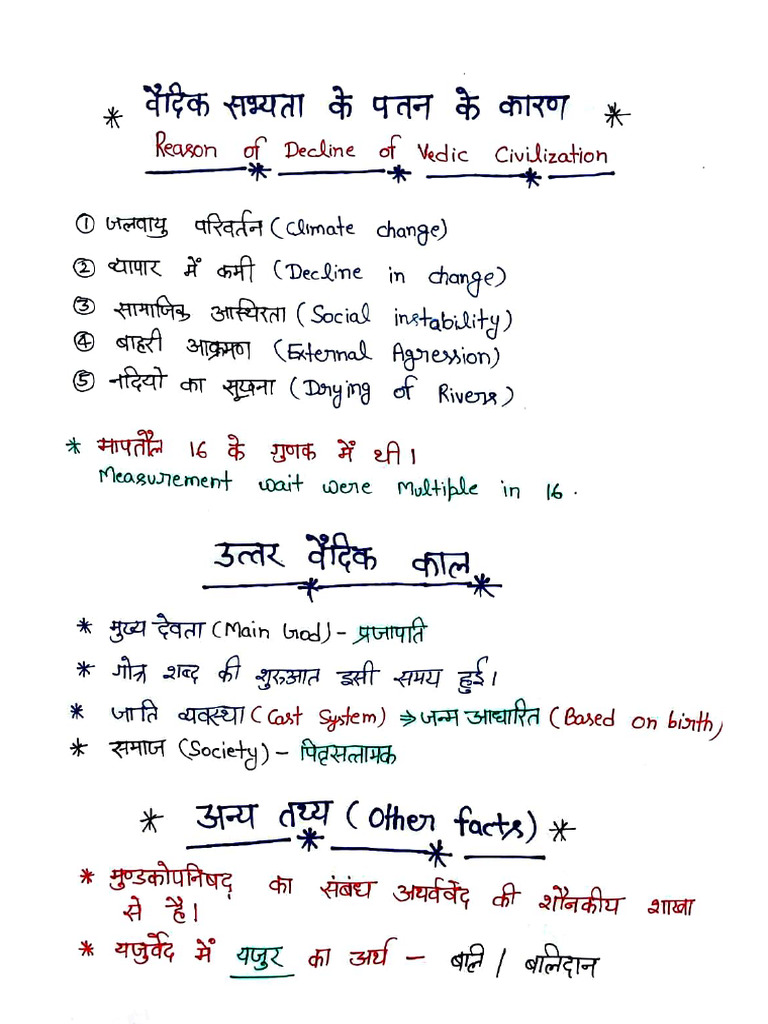 * वैदिक सभ्यता के पतन के कारण *
Reason of Decline of Vedic Civilization
① जलवायु परिवर्तन (Climate change)
② व्यापार में कमी (Decline in change)
③ सामाजिक आस्थिरता (Social instability)
④ बाहरी आक्रमण (External Agression)
⑤ नदियो का सूखना (Drying of Rivers)
* मापतौल 16 के गुणक में थी।
Measurement wait were Multiple in 16.
उत्तर वैदिक काल
* मुख्य देवता (Main God) - प्रजापति
* गोत्र शब्द की शुरुआत इसी समय हुई।
* जाति व्यवस्था (Cast System) ⇒ जन्म आधारित (Based on birth)
* समाज (Society) - पितृसत्तामक
* अन्य तथ्य (Other facts) *
* मुण्डकोपनिषद् का संबंध अथर्ववेद की शौनकीय शाखा
से है।
* यजुर्वेद में यजुर का अर्थ - बाली / बालिदान